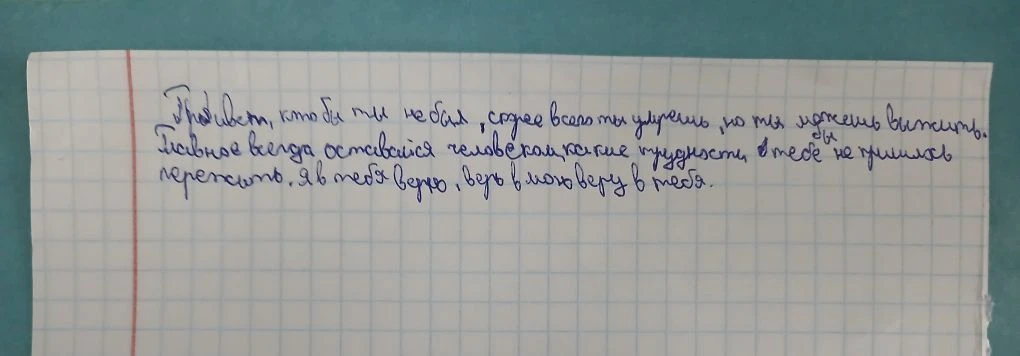 Привет, кто бы ты не был, скорее всего ты умрешь, но ты можешь выжить.
Главное всегда оставайся человеком, какие трудности бы тебе не пришлось
пережить. Я в тебя верю, верь в мою веру в тебя.